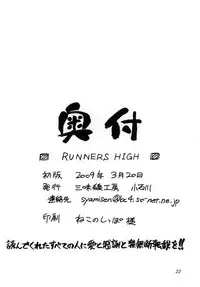 奥付
RUNNERS HIGH
初版 2009年 3月20日
発行 三味線工房 小石川
連絡先 syamisen@bc4.so-net.ne.jp
印刷 ねこのしっぽ 様
読んでくれたすべての人に愛と感謝と
22